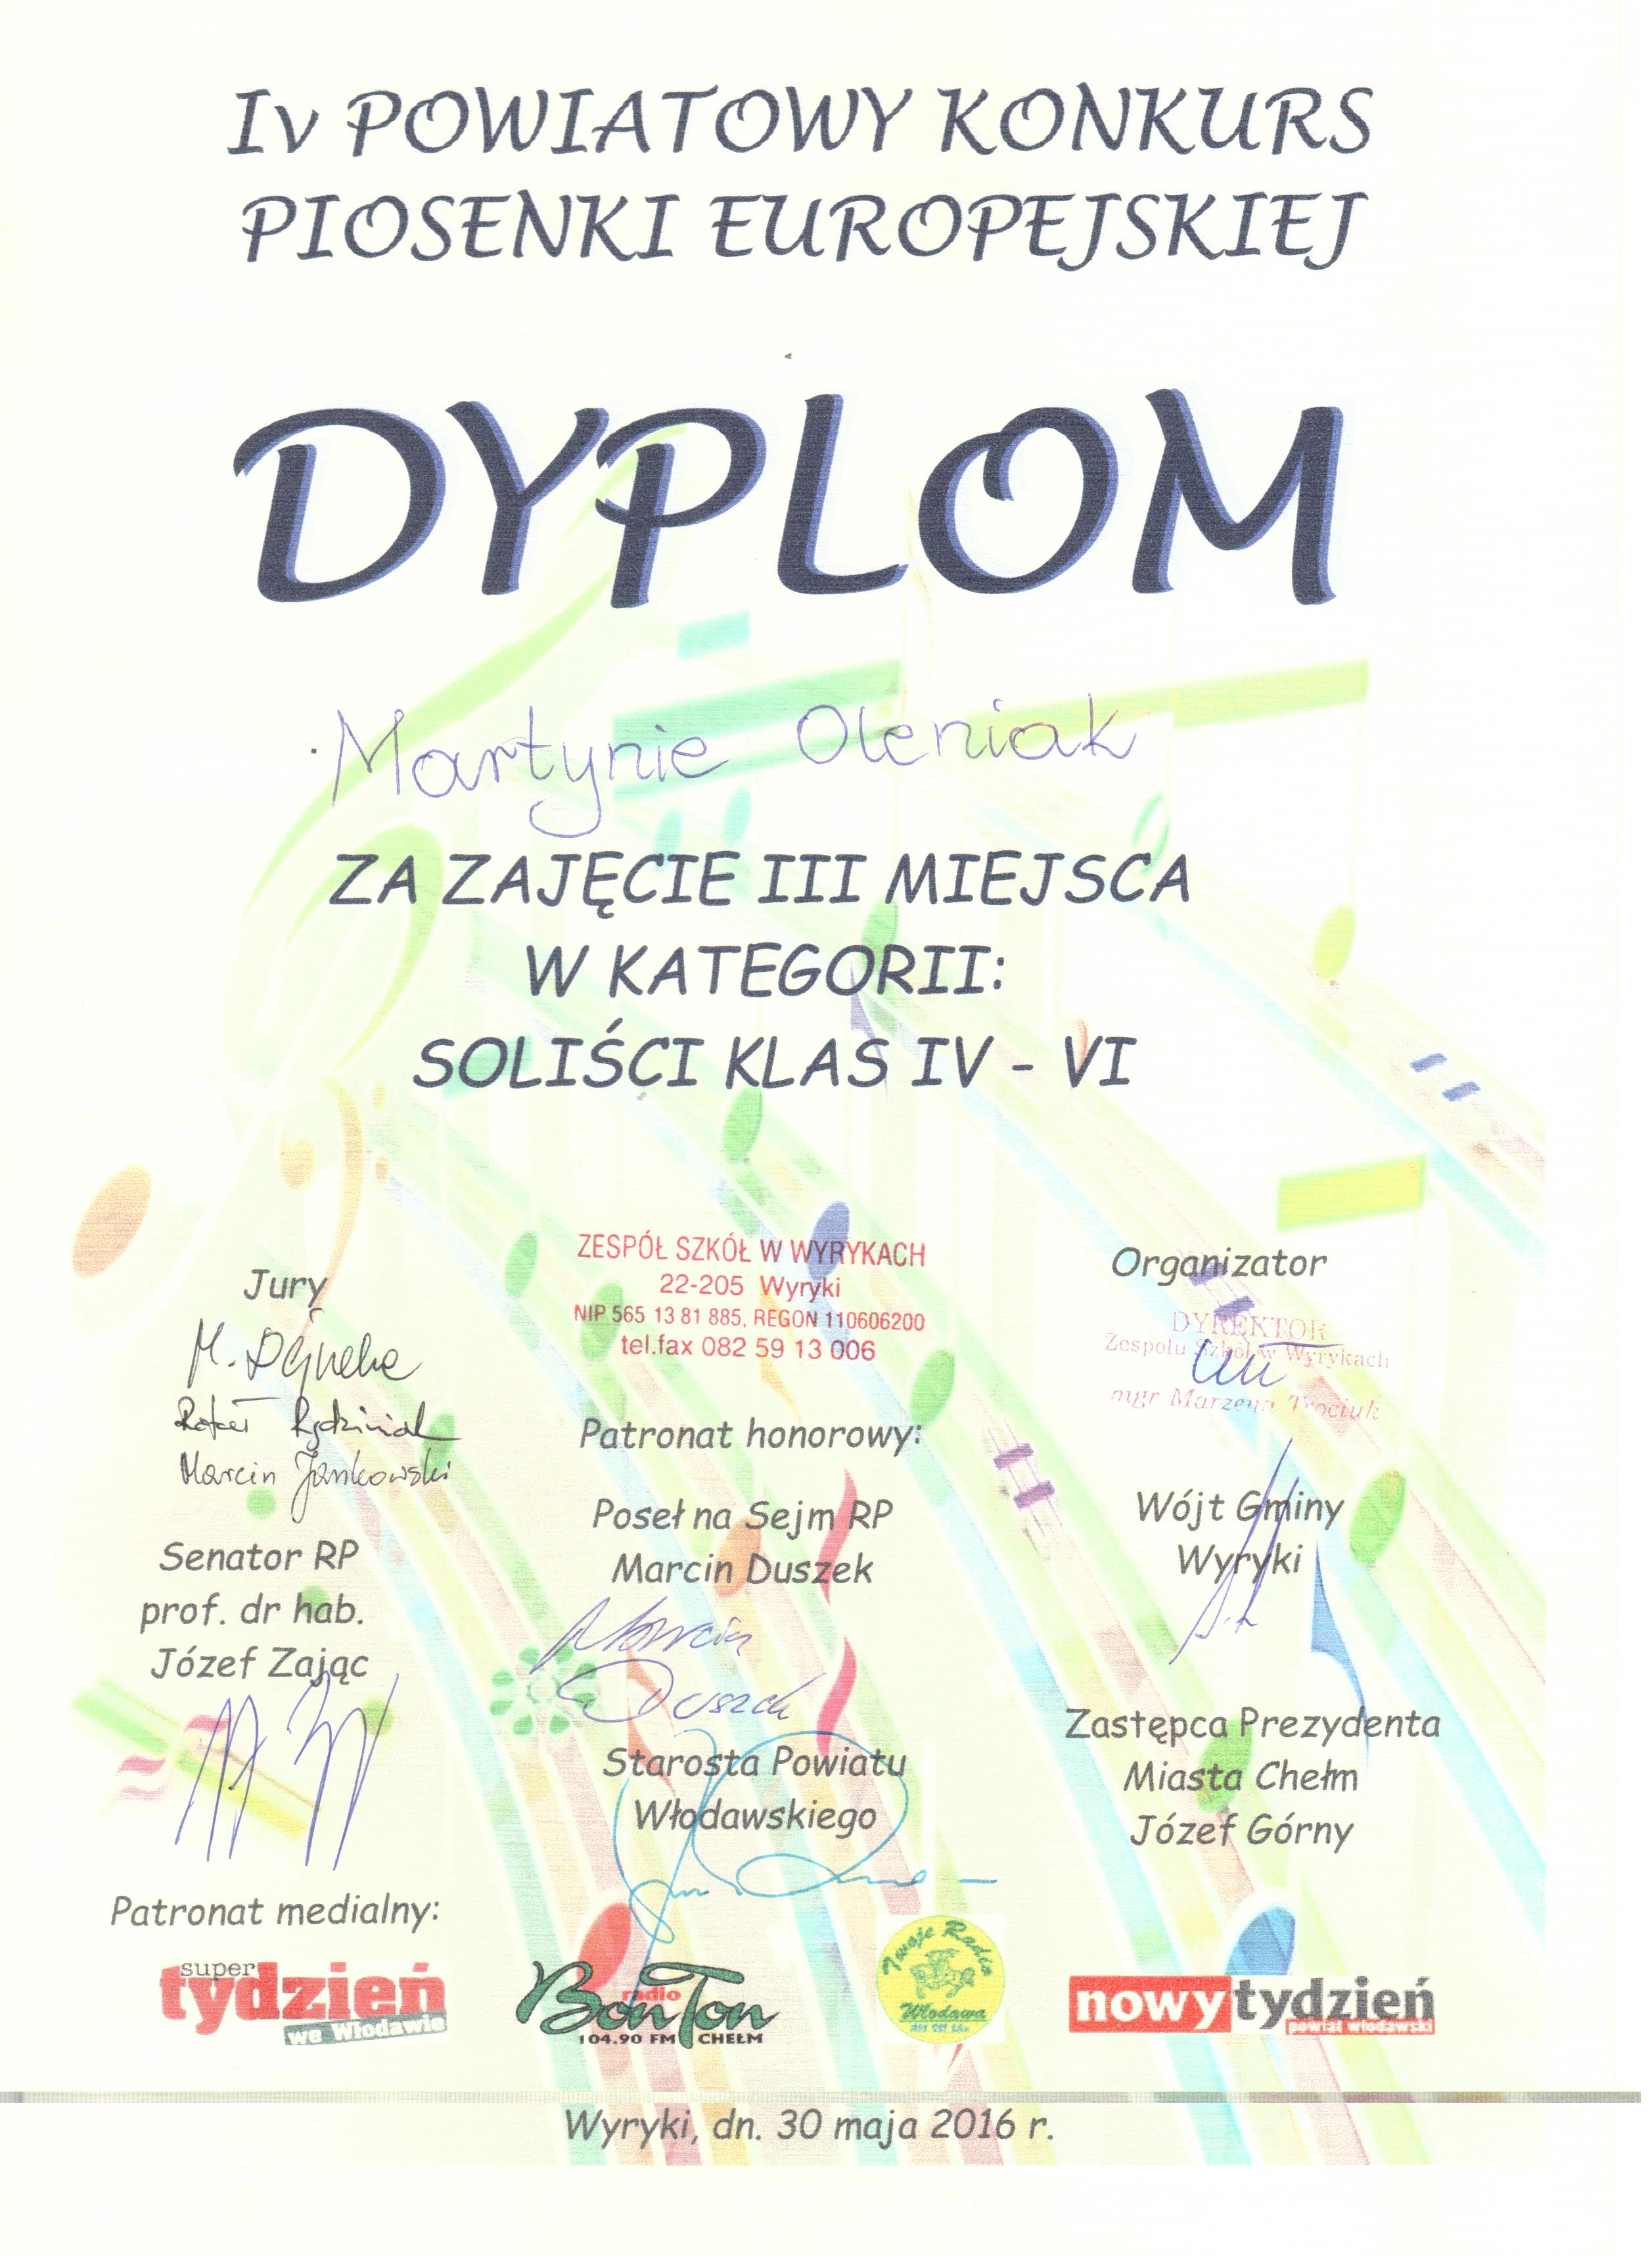 Iv POWIATOWY KONKURS
PIOSENKI EUROPEJSKIEJ
DYPLOM
Martynie Oleniak
ZA ZAJĘCIE III MIEJSCA
W KATEGORII:
SOLIŚCI KLAS IV - VI
Jury
M.
Rafał
Marcin Jankowski
ZESPÓŁ SZKÓŁ W WYRYKACH
22-205 Wyryki
NIP 565 13 81 885, REGON 110606200
tel.fax 082 59 13 006
Organizator
DYREKTOR
Zespołu Szkół w Wyrykach
mgr Marzena Trociuk
Patronat honorowy:
Senator RP
prof. dr hab.
Józef Zając
Poseł na Sejm RP
Marcin Duszek
Marcin
Duszek
Wójt Gminy
Wyryki
Starosta Powiatu
Włodawskiego
Zastępca Prezydenta
Miasta Chełm
Józef Górny
Patronat medialny:
super
tydzień
we Włodawie
radio
BonTon
104.90 FM CHEŁM
Twoje Radio
Włodawa
nowy tydzień
powiat włodawski
Wyryki, dn. 30 maja 2016 r.